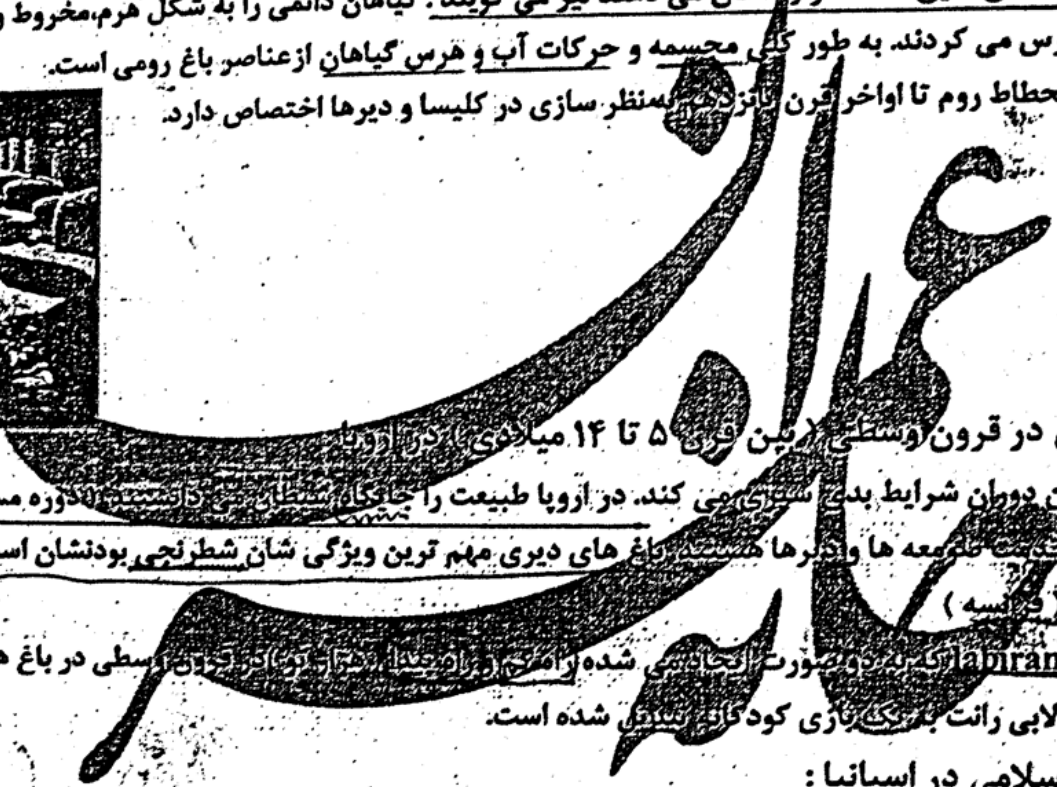 نیز می گویند. گیاهان دائمی را به شکل هرم،مخروط و
می کردند. به طور کلی مجسمه و حرکات آب و هرس گیاهان ازعناصر باغ رومی است.
روم تا اواخر قرن پانزدهم منظر سازی در کلیسا و دیرها اختصاص دارد.
در قرون وسطی ( بین قرن ۵ تا ۱۴ میلادی ) در اروپا
دوران شرایط بدی سپری می کند. در اروپا طبیعت را جایگاه شیطان می دانستند. دوره
صومعه ها و دیرها هستند. باغ های دیری مهم ترین ویژگی شان شطرنجی بودنشان
فرانسه )
که به دو صورت ایجاد می شده قرون وسطی در باغ
رانت به یک بازی کودکانه تبدیل شده است.
در اسپانیا :